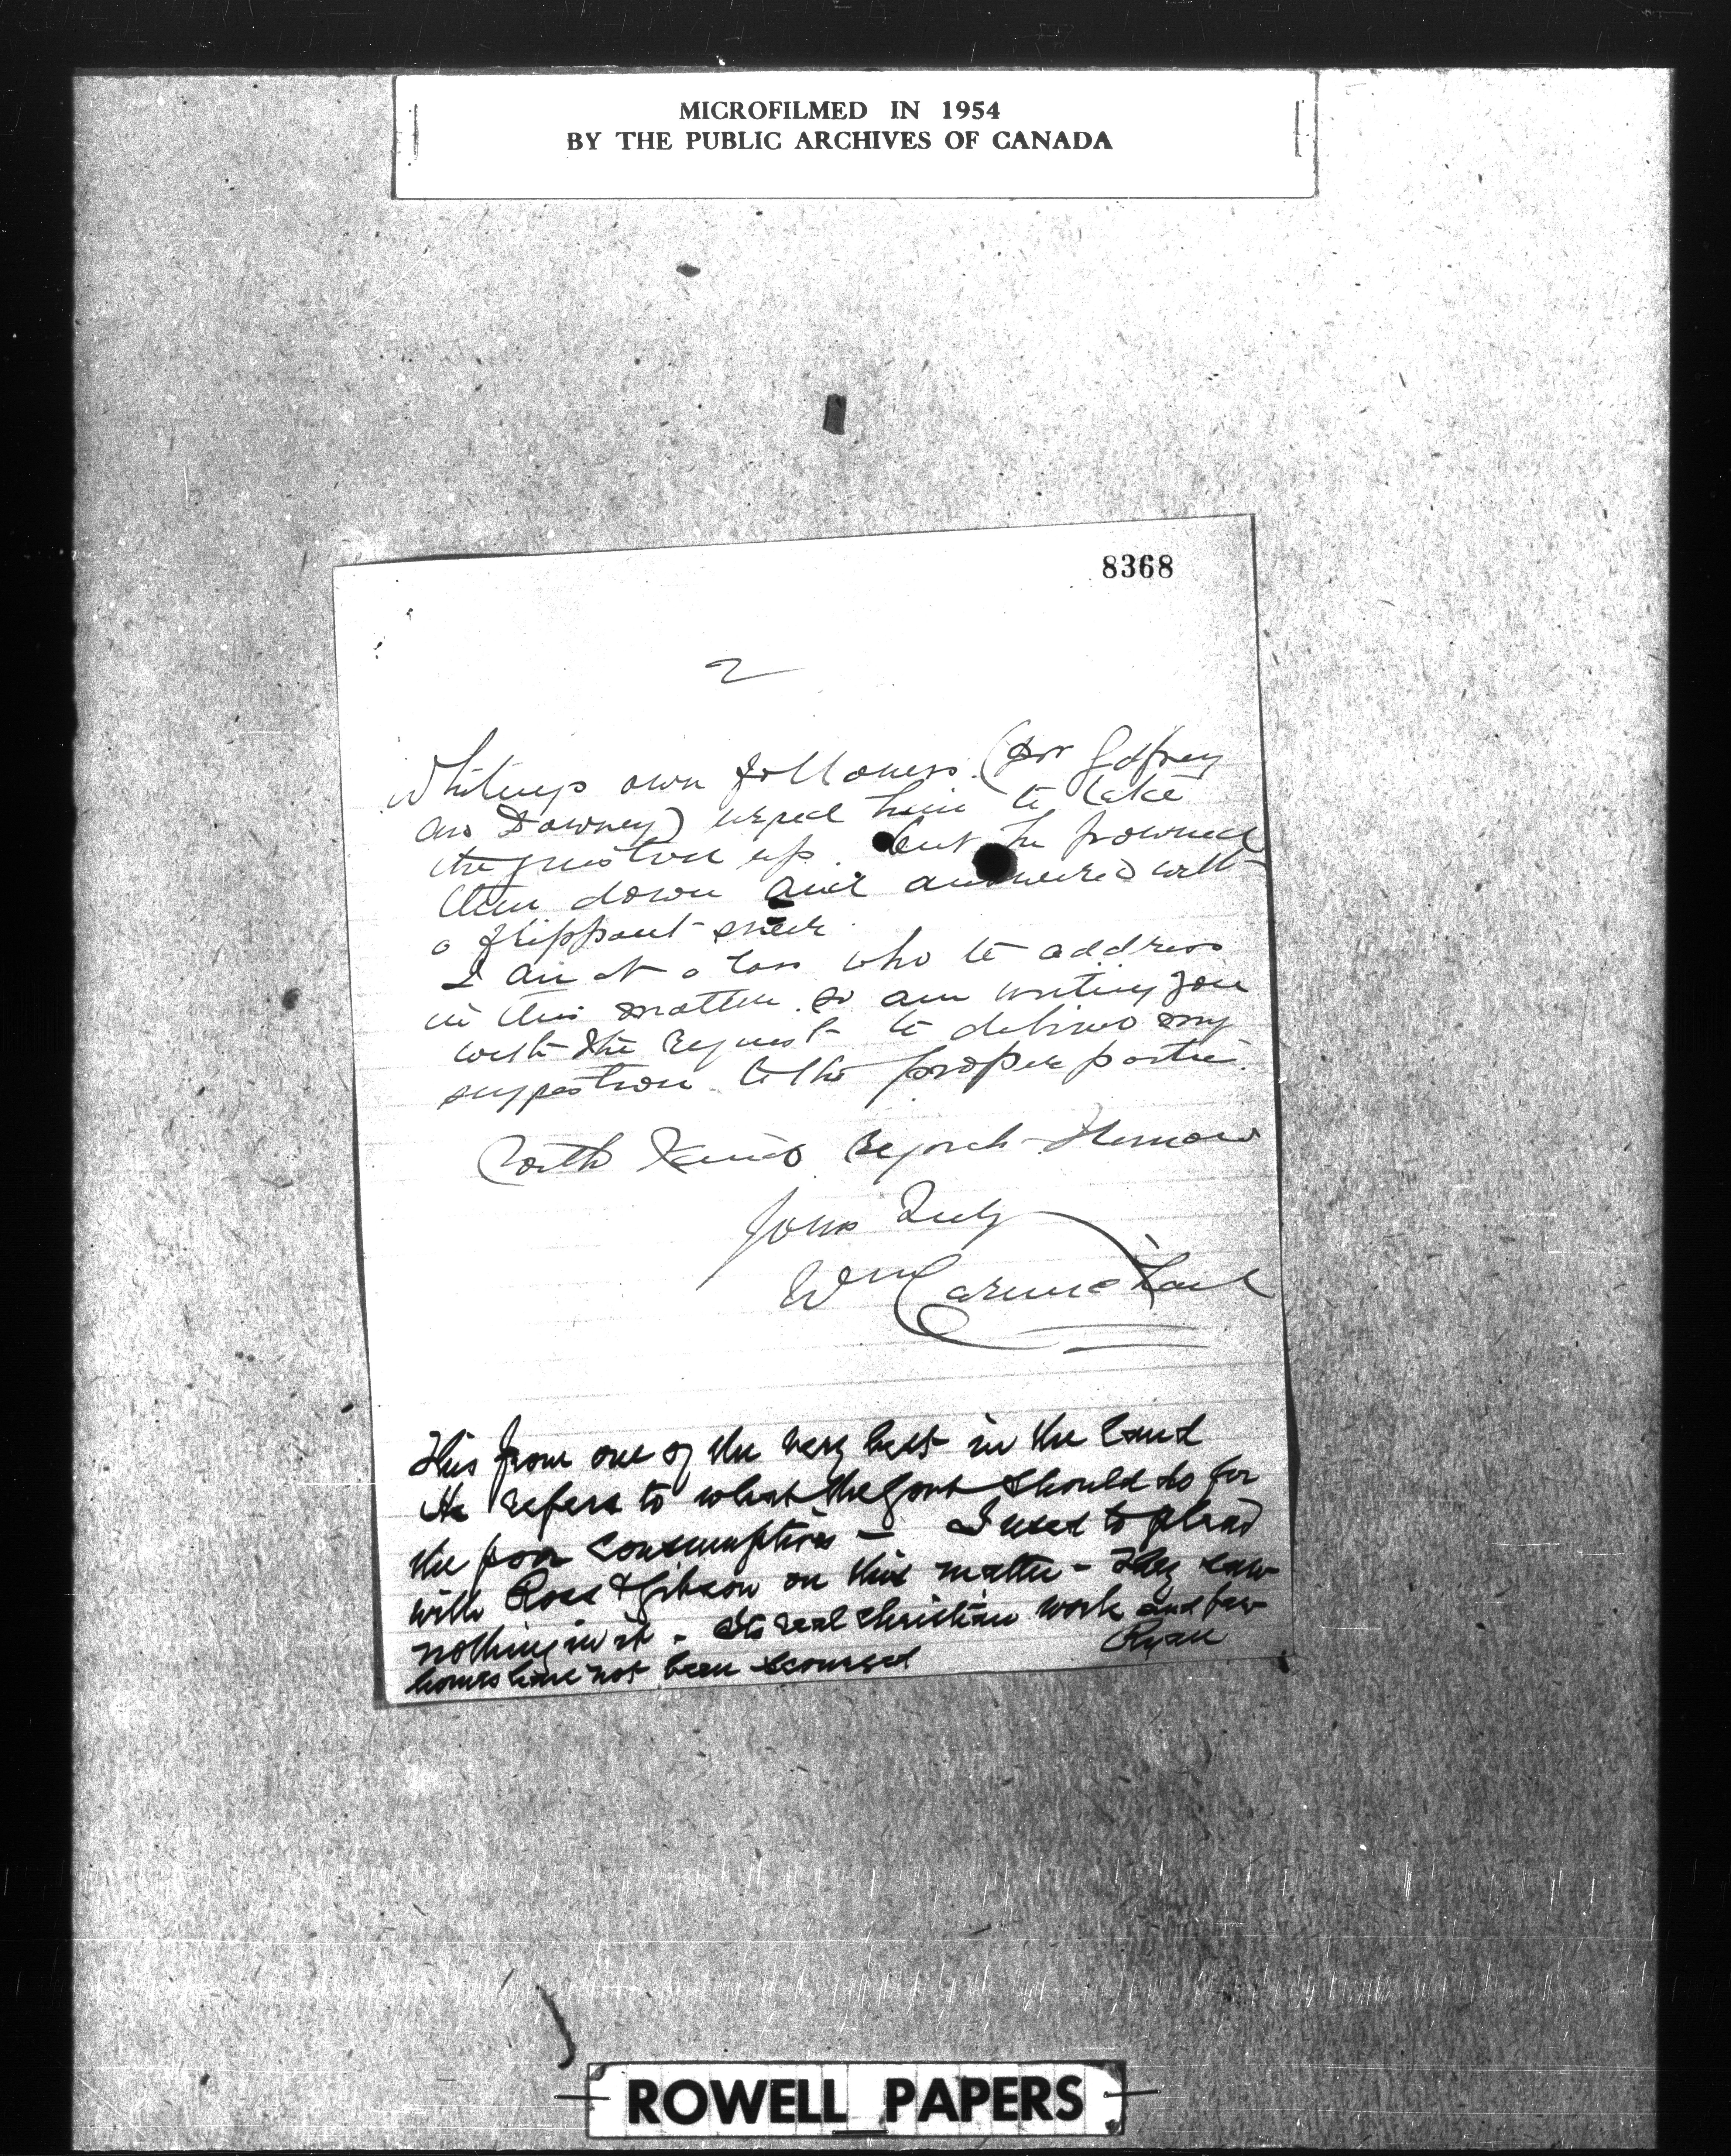 MICROFILMED IN 1954
BY THE PUBLIC ARCHIVES OF CANADA
8368
2
Whitneys own followers (Dr Godfrey
and Downey) urged him to take
the question up. but he frowned
them down and answered with
a flippant sneer.
I am at a loss who to address
in this matter so am writing you
with the request to deliver my
suggestion to the proper parties.
With Kind Regards
Yours Truly
Wm Carmichael
This from one of the very best in the land
He refers to what the Govt should do for
the poor consumptives — I used to plead
with Ross & Gibson on this matter - They saw
nothing in it - Its real Christian work and few
homes have not been scourged
Ryan
ROWELL PAPERS